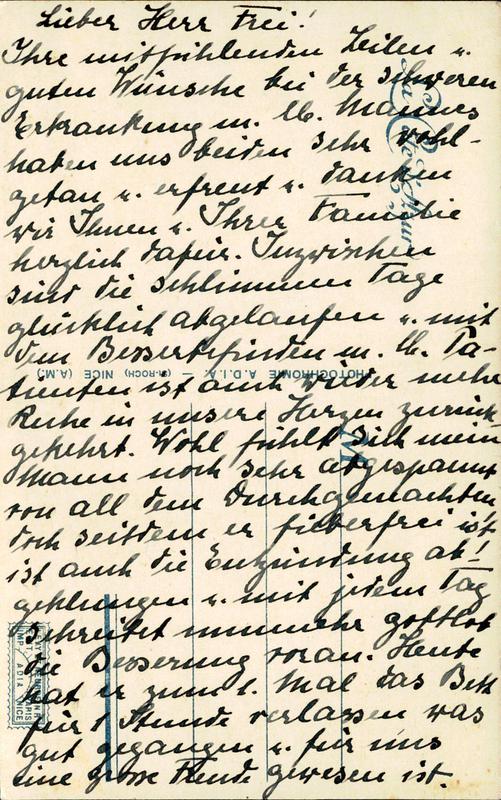 Lieber Herr Frei!
Ihre mitfühlenden Zeilen u.
guten Wünsche bei der schweren
Erkrankung m. lb. Mannes
haben uns beiden sehr wohl-
getan u. erfreut u. danken
wir Ihnen u. Ihrer Familie
herzlich dafür. Inzwischen
sind die schlimmen Tage
glücklich abgelaufen u. mit
dem Besserbefinden m. lb. Pa-
tienten ist auch wieder mehr
PHOTOCHROME A.D.I.A. — (St-ROCH) NICE (A.M.)
Ruhe in unsere Herzen zurück
gekehrt. Wohl fühlt sich mein
Mann noch sehr abgespannt
von all dem Durchgemachten
doch seitdem er fieberfrei ist
ist auch die Entzündung ab!
geklungen u. mit jedem Tag
schreitet nunmehr gottlob
die Besserung voran. Heute
hat er zum 1. Mal das Bett
für 1 Stunde verlassen was
gut gegangen u. für uns
eine grosse Freude gewesen ist.